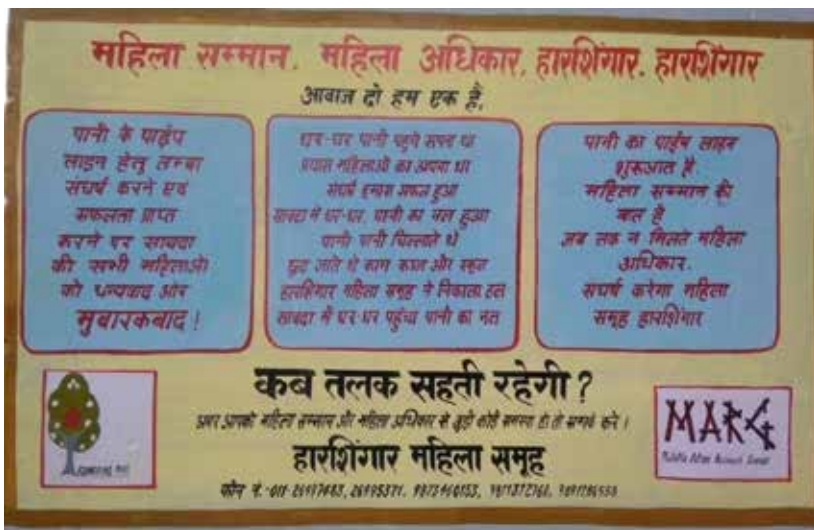 महिला सम्मान, महिला अधिकार, हारशिंगार, हारशिंगार
आवाज दो हम एक है,
पानी के पाईप
लाइन हेतु लम्बा
संघर्ष करने एवं
सफलता प्राप्त
करने पर सावदा
की सभी महिलाओं
को धन्यवाद और
मुबारकबाद!
घर-घर पानी पहुचे सपना था
प्रयास महिलाओं का अपना था
संघर्ष हमारा सफल हुआ
सावदा में घर-घर, पानी का नल हुआ
पानी पानी चिल्लाते थे
छूट जाते थे काम काज और स्कूल
हारशिंगार महिला समूह ने निकाला हल
सावदा में घर-घर पहुंचा पानी का नल
पानी का पाईप लाइन
शुरूआत है.
महिला सम्मान की
बात है
जब तक न मिलते महिला
अधिकार.
संघर्ष करेगा महिला
समूह हारशिंगार
कब तलक सहती रहेगी?
अगर आपको महिला सम्मान और महिला अधिकार से जुड़ी कोई समस्या हो तो सम्पर्क करे।
हारशिंगार महिला समूह
फोन नं.-011-26497483, 26495371,
MARG